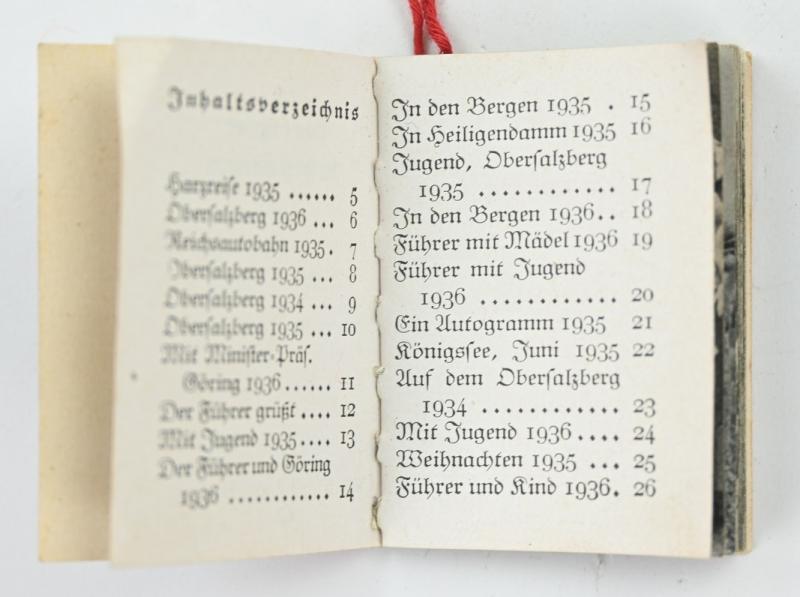 Inhaltsverzeichnis
Harzreise 1935 ...... 5
Obersalzberg 1936 ... 6
Reichsautobahn 1935. 7
Obersalzberg 1935 ... 8
Obersalzberg 1934 ... 9
Obersalzberg 1935 ... 10
Mit Minister-Präs.
Göring 1936...... 11
Der Führer grüßt .... 12
Mit Jugend 1935.... 13
Der Führer und Göring
1936 ............ 14
In den Bergen 1935 . 15
In Heiligendamm 1935 16
Jugend, Obersalzberg
1935 ............ 17
In den Bergen 1936.. 18
Führer mit Mädel 1936 19
Führer mit Jugend
1936 ............ 20
Ein Autogramm 1935 21
Königssee, Juni 1935 22
Auf dem Obersalzberg
1934 ............ 23
Mit Jugend 1936.... 24
Weihnachten 1935 ... 25
Führer und Kind 1936. 26